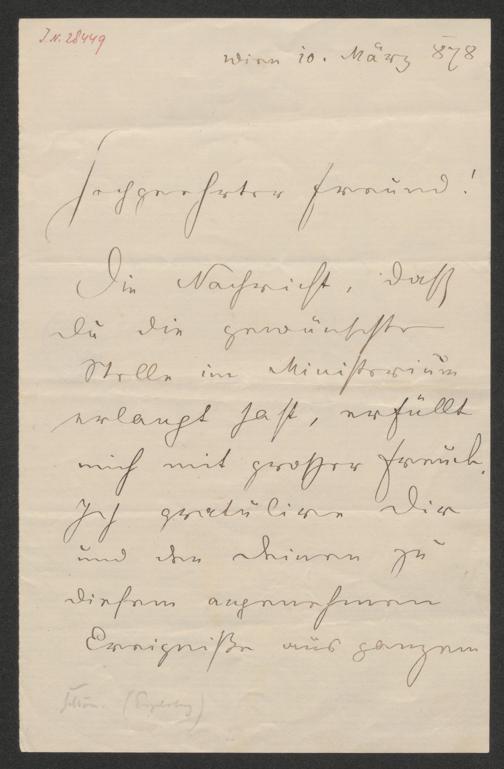 J.N. 28449
Wien 10. März 878
Hochgeehrter Freund!
Die Nachricht, daß
Du die gewünschte
Stelle im Ministerium
erlangt hast, erfüllt
mich mit großer Freude.
Ich gratulire Dir
und den Deinen zu
diesem angenehmen
Ereigniße aus ganzem